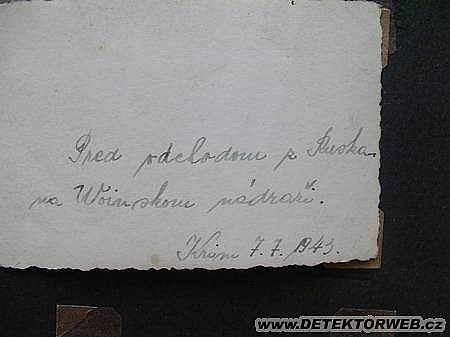 Pred odchodom z Ruska
na Woinskom nádraží.
Krim 7.7.1943.
WWW.DETEKTORWEB.CZ